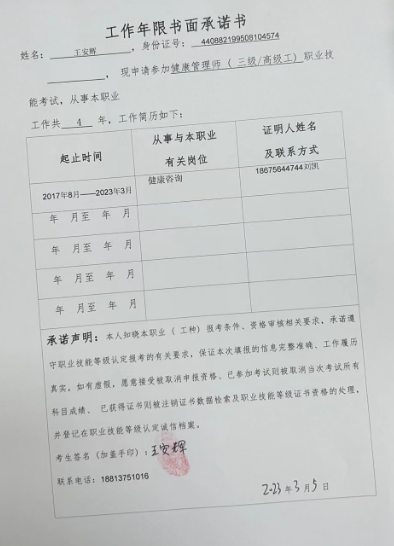 工作年限书面承诺书
姓名：王安辉，身份证号：440882199508104574
，现申请参加健康管理师（三级/高级工）职业技
能考试，从事本职业
工作共 4 年，工作简历如下：
起止时间 从事与本职业有关岗位 证明人姓名及联系方式
2017年8月——2023年3月 健康咨询 18875644744刘凯
年 月至 年 月
年 月至 年 月
年 月至 年 月
年 月至 年 月
承诺声明：本人知晓本职业（工种）报考条件、资格审核相关要求，承诺遵
守职业技能等级认定报考的有关要求，保证本次填报的信息完整准确、工作履历
真实。如有虚假，愿意接受被取消申报资格、已参加考试则被取消当次考试所有
科目成绩、已获得证书则被注销证书数据检索及职业技能等级证书资格的处理，
并登记在职业技能等级认定诚信档案。
考生签名（加盖手印）：王安辉
联系电话：18813751016
2023年3月5日